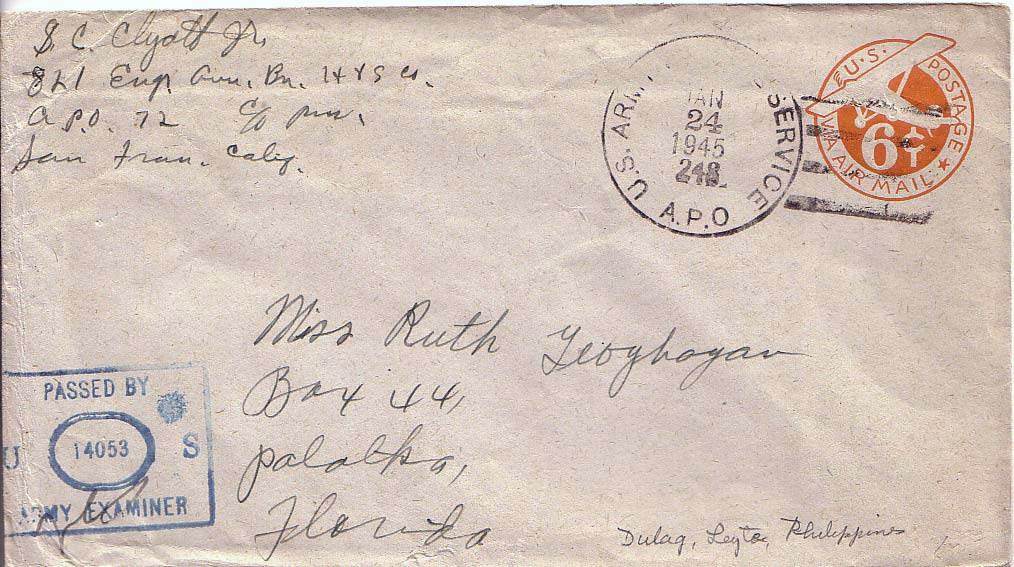 S. C. Clyatt Jr.
821 Engr. Avn. Bn. H & S Co.
A.P.O. 72 C/O P.M.
San Fran. Calif.
U.S. ARM SERVICE
JAN
24
1945
248
A.P.O
U.S. POSTAGE
6¢
VIA AIR MAIL
Miss Ruth Geoghagan
Box 44,
Palatka,
Florida
PASSED BY
U 14053 S
ARMY EXAMINER
Dulag, Leyte, Philippines